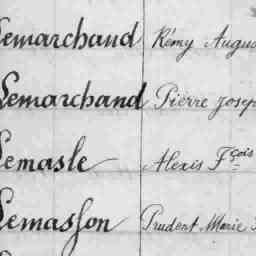 Lemarchand Rémy Augu
Lemarchand Pierre Josep
Lemasle Alexis Fçois
Lemasson Prudent Marie